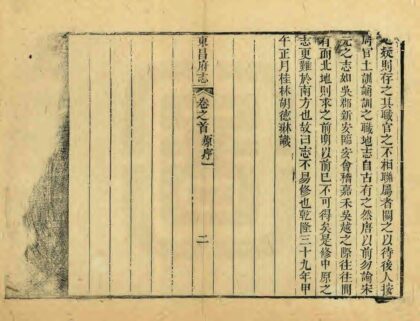 疑則存之其職官之不相聯屬者闕之以待後人按
周官土訓誦訓之職地志自古有之然唐以前勿論宋
元之志如吳郡新安臨安會稽嘉禾吳越之際往往間
有而北地則求之前明以前已不可得矣是修中原之
志更難於南方也故曰志不易修也乾隆三十九年甲
午正月桂林胡德琳識
東昌府志 卷之首 原序一 二